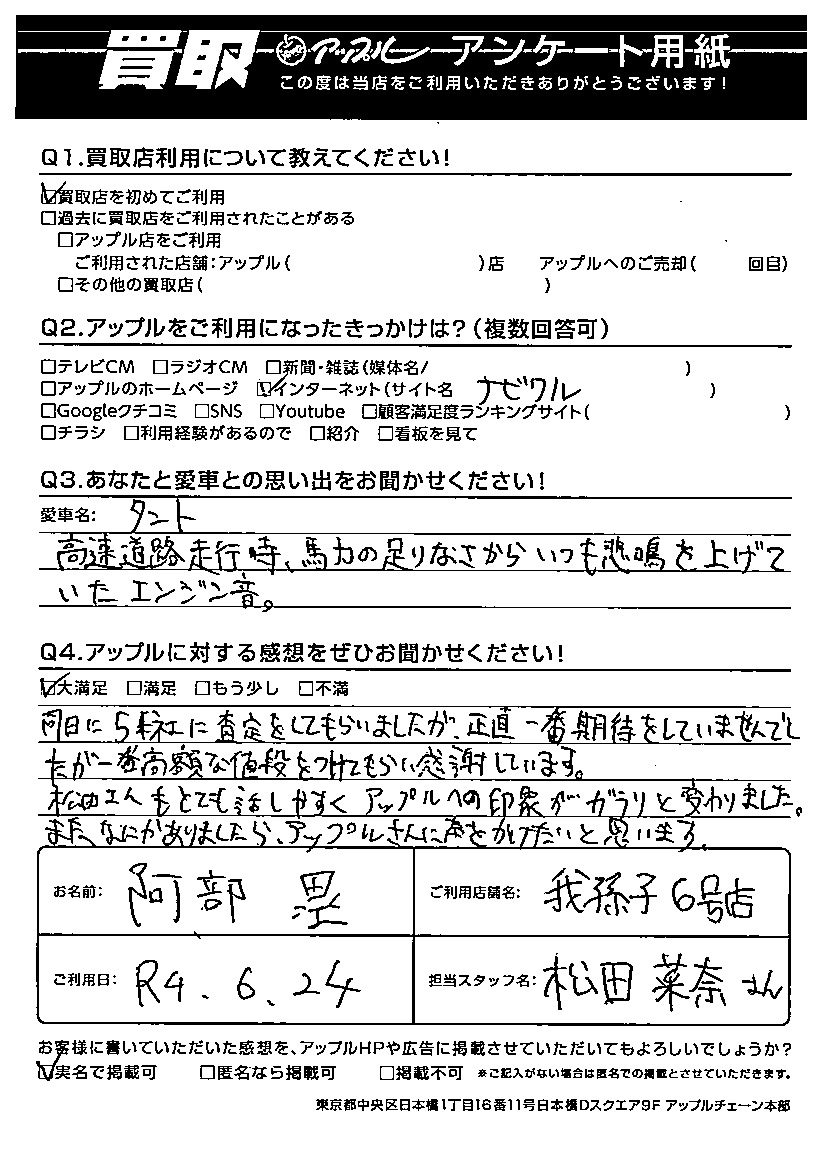 買取 アップル アンケート用紙
この度は当店をご利用いただきありがとうございます!
Q1.買取店利用について教えてください!
買取店を初めてご利用
□過去に買取店をご利用されたことがある
□アップル店をご利用
ご利用された店舗:アップル( )店 アップルへのご売却( 回目)
□その他の買取店( )
Q2.アップルをご利用になったきっかけは?(複数回答可)
□テレビCM □ラジオCM □新聞・雑誌(媒体名/ )
□アップルのホームページ インターネット(サイト名 ナビクル )
□Googleクチコミ □SNS □Youtube □顧客満足度ランキングサイト( )
□チラシ □利用経験があるので □紹介 □看板を見て
Q3.あなたと愛車との思い出をお聞かせください!
愛車名: タント
高速道路走行時、馬力の足りなさからいつも悲鳴を上げて
いたエンジン音。
Q4.アップルに対する感想をぜひお聞かせください!
大満足 □満足 □もう少し □不満
同日に5社に査定をしてもらいましたが、正直一番期待をしていませんでし
たが一番高額な値段をつけてもらい感謝しています。
松田さんもとても話しやすくアップルへの印象がガラリと変わりました。
また、なにかありましたら、アップルさんに声をかけたいと思います。
お名前: 阿部 ご利用店舗名: 我孫子6号店
ご利用日: R4.6.24 担当スタッフ名: 松田菜奈さん
お客様に書いていただいた感想を、アップルHPや広告に掲載させていただいてもよろしいでしょうか?
実名で掲載可 □匿名なら掲載可 □掲載不可 ※ご記入がない場合は匿名での掲載とさせていただきます。
東京都中央区日本橋1丁目16番11号日本橋Dスクエア9F アップルチェーン本部